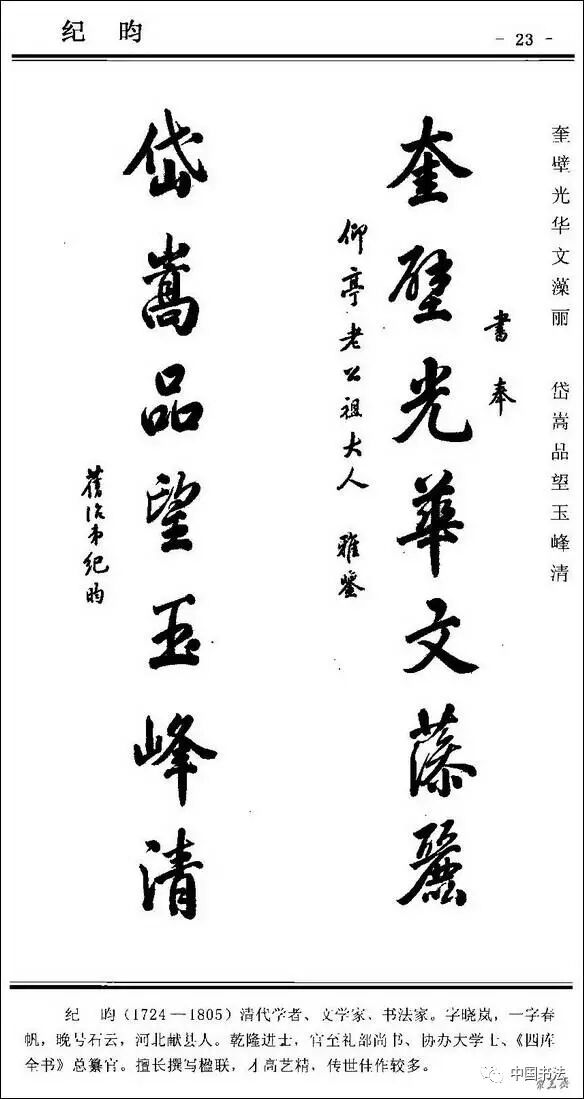 纪 昀
- 23 -
奎壁光华文藻丽 岱嵩品望玉峰清
書奉
奎壁光華文藻麗
仰亭老公祖大人 雅鑒
岱嵩品望玉峰清
舊治弟紀昀
纪 昀(1724—1805)清代学者、文学家、书法家。字晓岚,一字春
帆,晚号石云,河北献县人。乾隆进士,官至礼部尚书、协办大学士、《四库
全书》总纂官。擅长撰写楹联,才高艺精,传世佳作较多。
中国书法